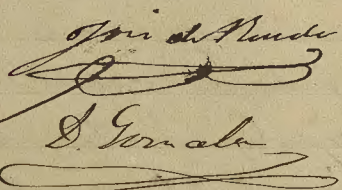 José de Rueda
D. Gonzalez